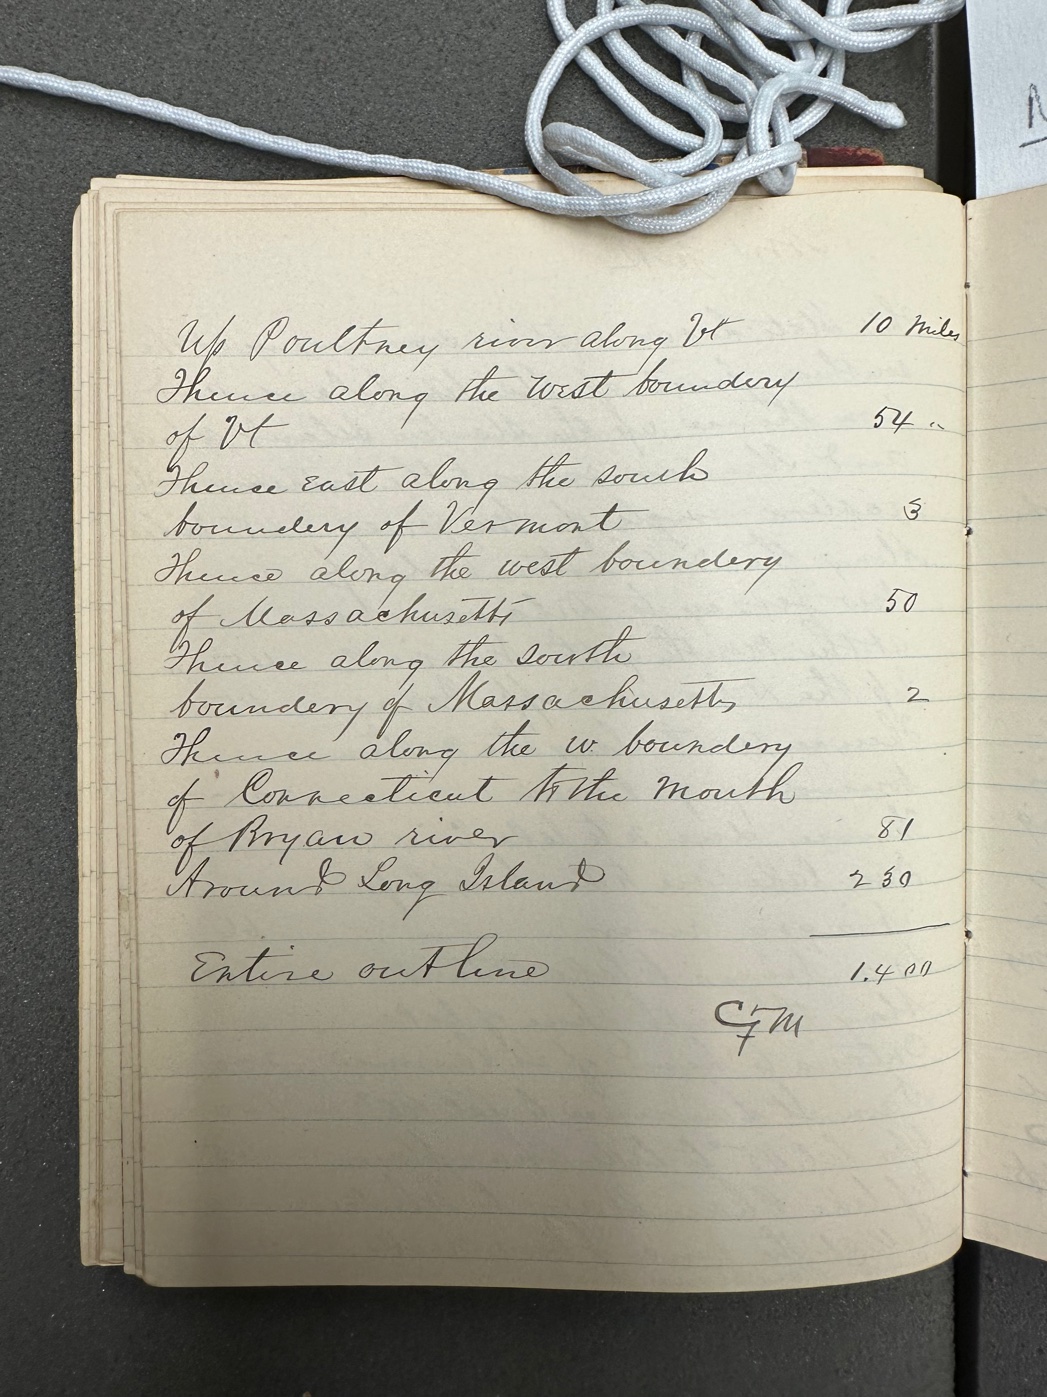 Up Poultney river along Vt 10 Miles
Thence along the west boundery
of Vt 54 "
Thence east along the south
boundery of Vermont 3
Thence along the west boundery
of Massachusetts 50
Thence along the south
boundery of Massachusetts 2
Thence along the w. boundery
of Connecticut to the mouth
of Bryan river 81
Around Long Island 230
Entire outline 1.400
CFM